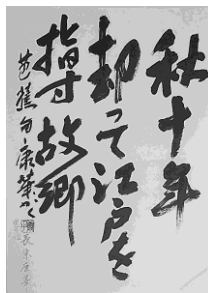 秋十年
却って江戸を
指す故郷
芭蕉句